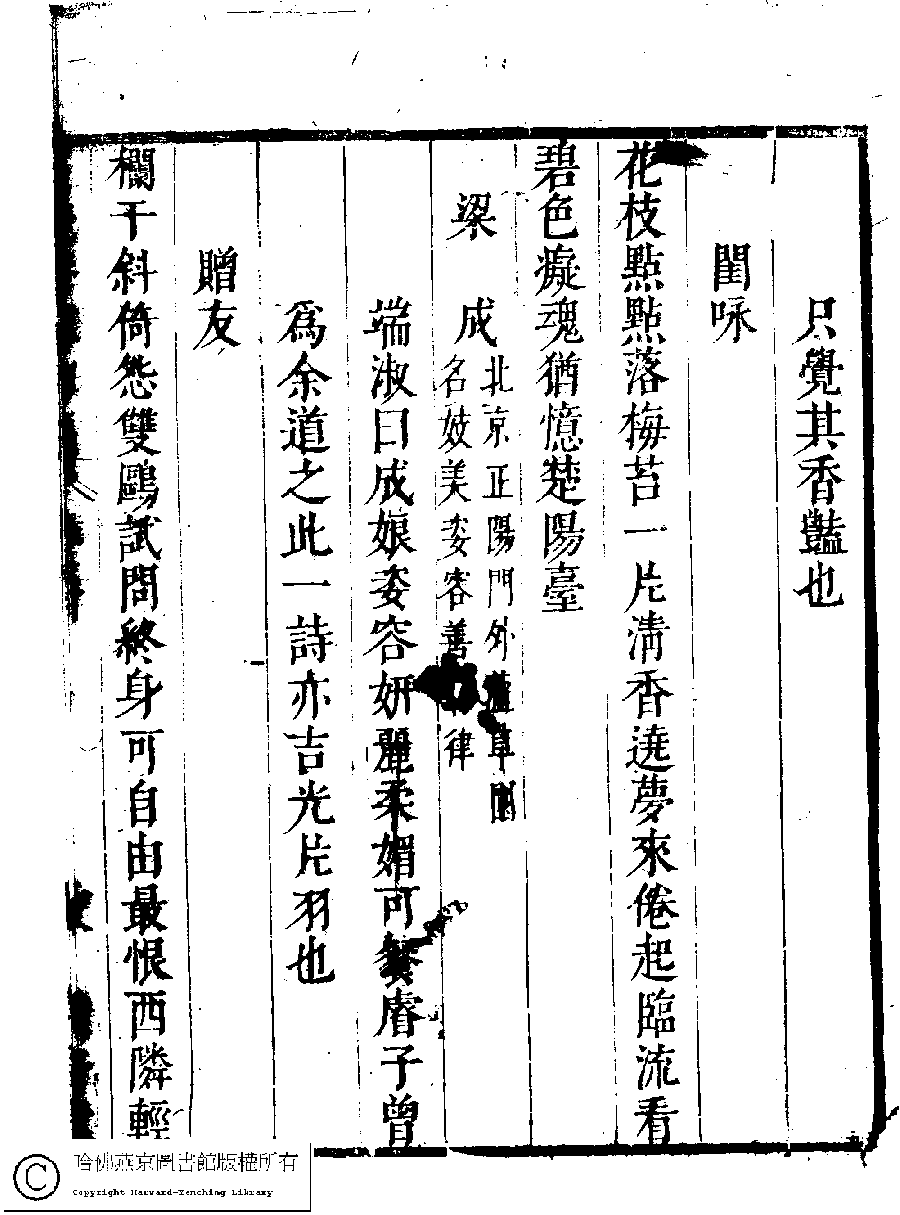 只覺其香豔也
閨咏
花枝點點落梅苔一片清香遶夢來倦起臨流看
碧色癡魂猶憶楚陽臺
梁成
北京正陽門外草園
名妓美姿容善律
端淑曰成娘姿容妍麗柔媚可餐㾪子曾
為余道之此一詩亦吉光片羽也
贈友
欄干斜倚怨雙鷗試問終身可自由最恨西隣輕
哈佛燕京圖書館版權所有
Copyright Harvard-Yenching Library